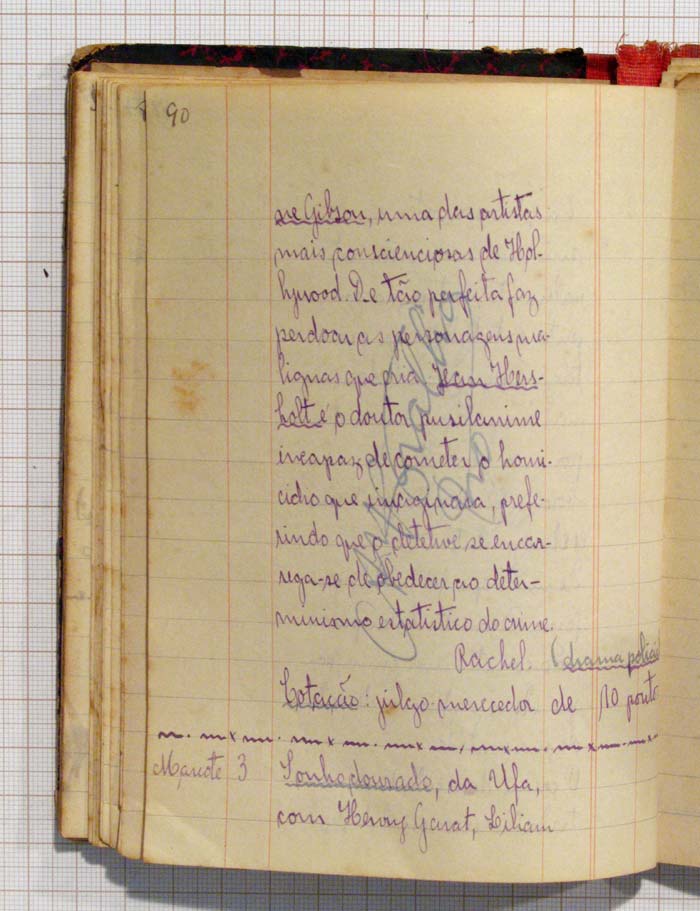 90
ne Gibson, uma das artistas
mais conscienciosas de Hol-
lywood. De tão perfeita faz
perdoar as personagens ma-
lignas que cria. Jean Hers-
holt é o doutor pusilanime
incapaz de cometer o homi-
cidio que imaginara, prefe-
rindo que o detetive se encar-
rega-se de obedecer ao deter-
minismo estatistico do crime.
Rachel. (drama policial
Cotacão: julgo merecedor de 10 ponto
3 Sonho dourado, da Ufa,
com Henry Garat, Liliam